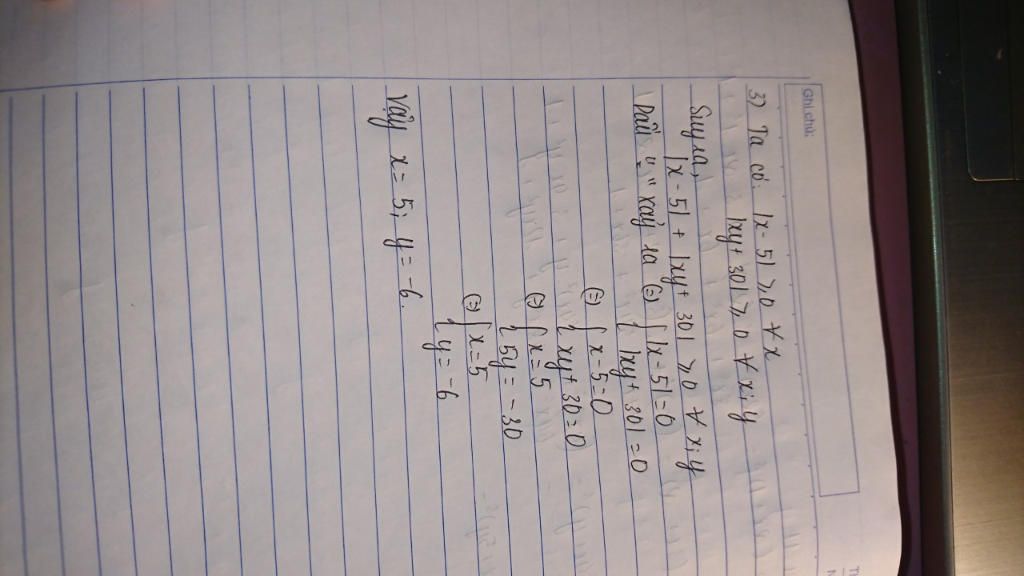 Ghi chú:
3) Ta có: |x - 5| ⩾ 0 ∀ x
|xy + 30| ⩾ 0 ∀ x; y
Suy ra,
|x - 5| + |xy + 30| ⩾ 0 ∀ x; y
Dấu "=" xảy ra ⇔ { |x - 5| = 0
{ |xy + 30| = 0
⇔ { x - 5 = 0
{ xy + 30 = 0
⇔ { x = 5
{ 5y = -30
⇔ { x = 5
{ y = -6
Vậy x = 5; y = -6.